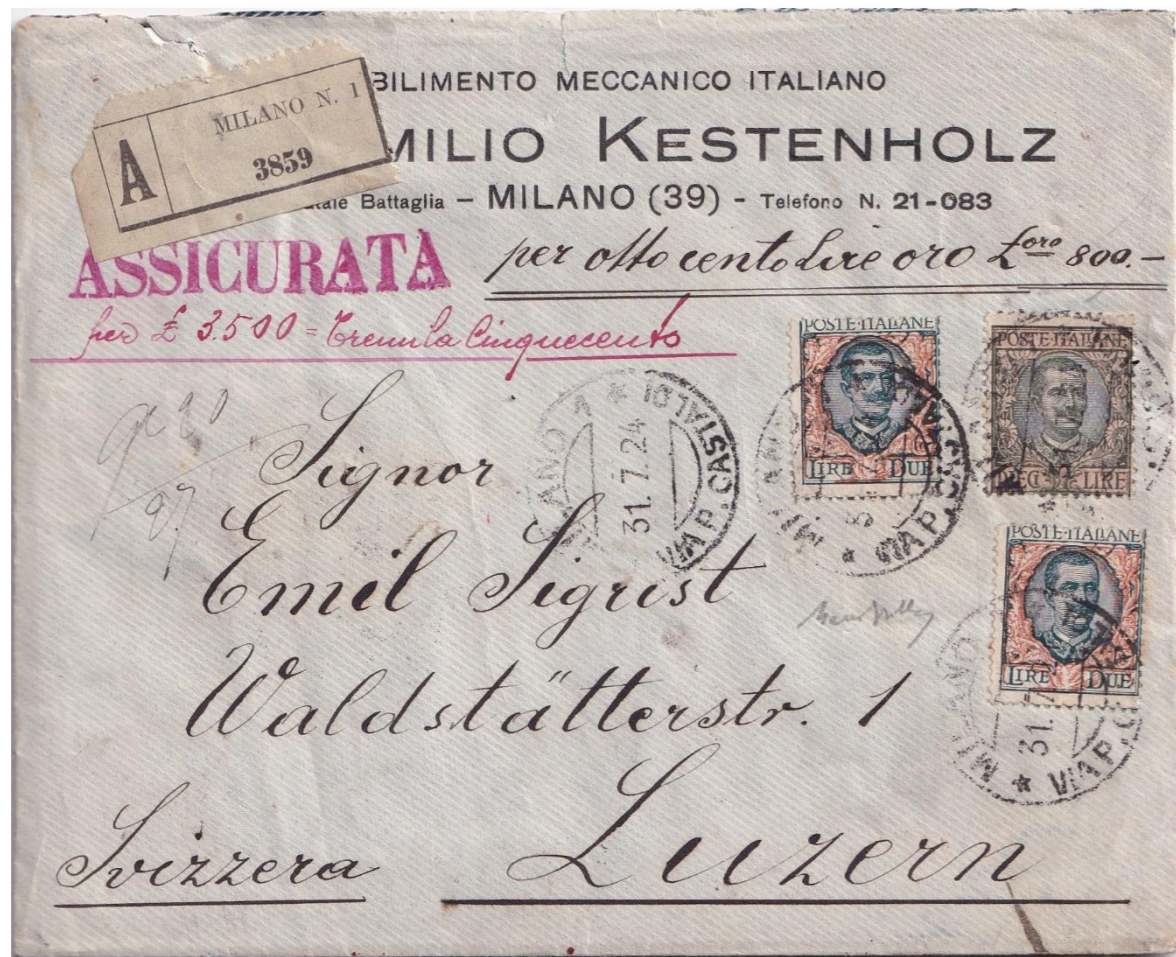 BILIMENTO MECCANICO ITALIANO
MILIO KESTENHOLZ
Battaglia - MILANO (39) - Telefono N. 21-083
A
MILANO N. 1
3859
ASSICURATA
per otto cento Lire oro £oro 800.-
per £ 3.500 = Tremila Cinquecento
POSTE·ITALIANE
LIRE DUE
POSTE·ITALIANE
LIRE
POSTE·ITALIANE
LIRE DUE
31.7.24
VIA P. CASTALDI
Signor
Emil Sigrist
Waldstätterstr. 1
Luzern
Svizzera